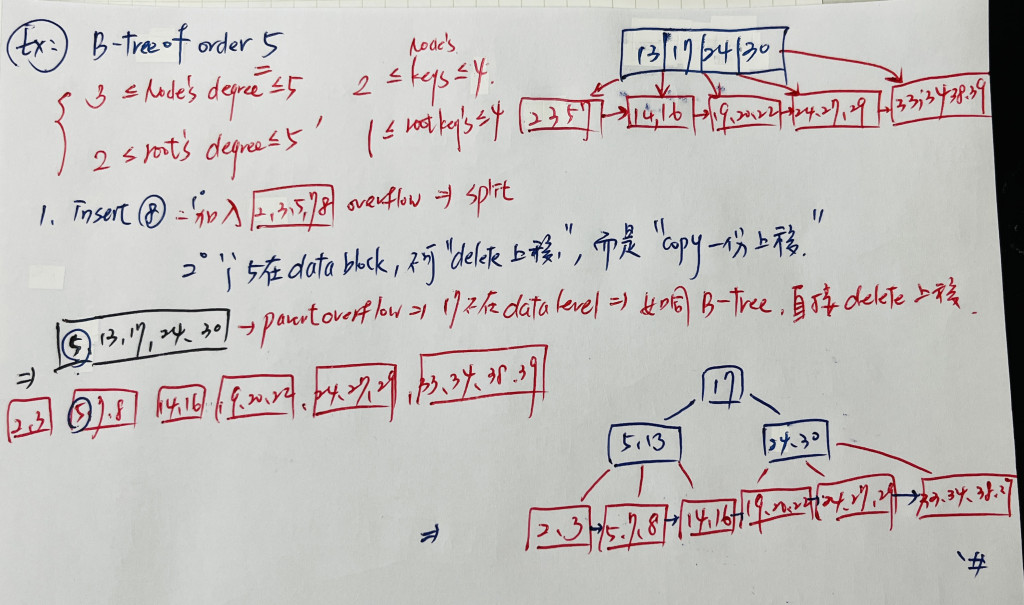 Ex: B-Tree of order 5
3 ≤ Node's degree ≤ 5
2 ≤ root's degree ≤ 5,
Node's
2 ≤ keys ≤ 4.
1 ≤ root key's ≤ 4
13 | 17 | 24 | 30
2 3 5 7 → 14, 16 → 19, 20, 22 → 24, 27, 29 → 33, 34 38, 39
1. Insert ⑧ = 1° 加入 2, 3, 5, 7, 8 overflow ⇒ split
2° ∵ 5在data block, 不可"delete上移,", 而是 "copy一份上移."
⇒ ⑤, 13, 17, 24, 30 → parent overflow ⇒ 17不在data level ⇒ 如同 B-Tree, 直接 delete 上移.
2, 3 ⑤, 7, 8 14, 16, 19, 20, 22, 24, 27, 29, 33, 34, 38, 39
17
5, 13 24, 30
⇒ 2, 3 → 5, 7, 8 → 14, 16 → 19, 20, 22 → 24, 27, 29 → 33, 34, 38, 39
#